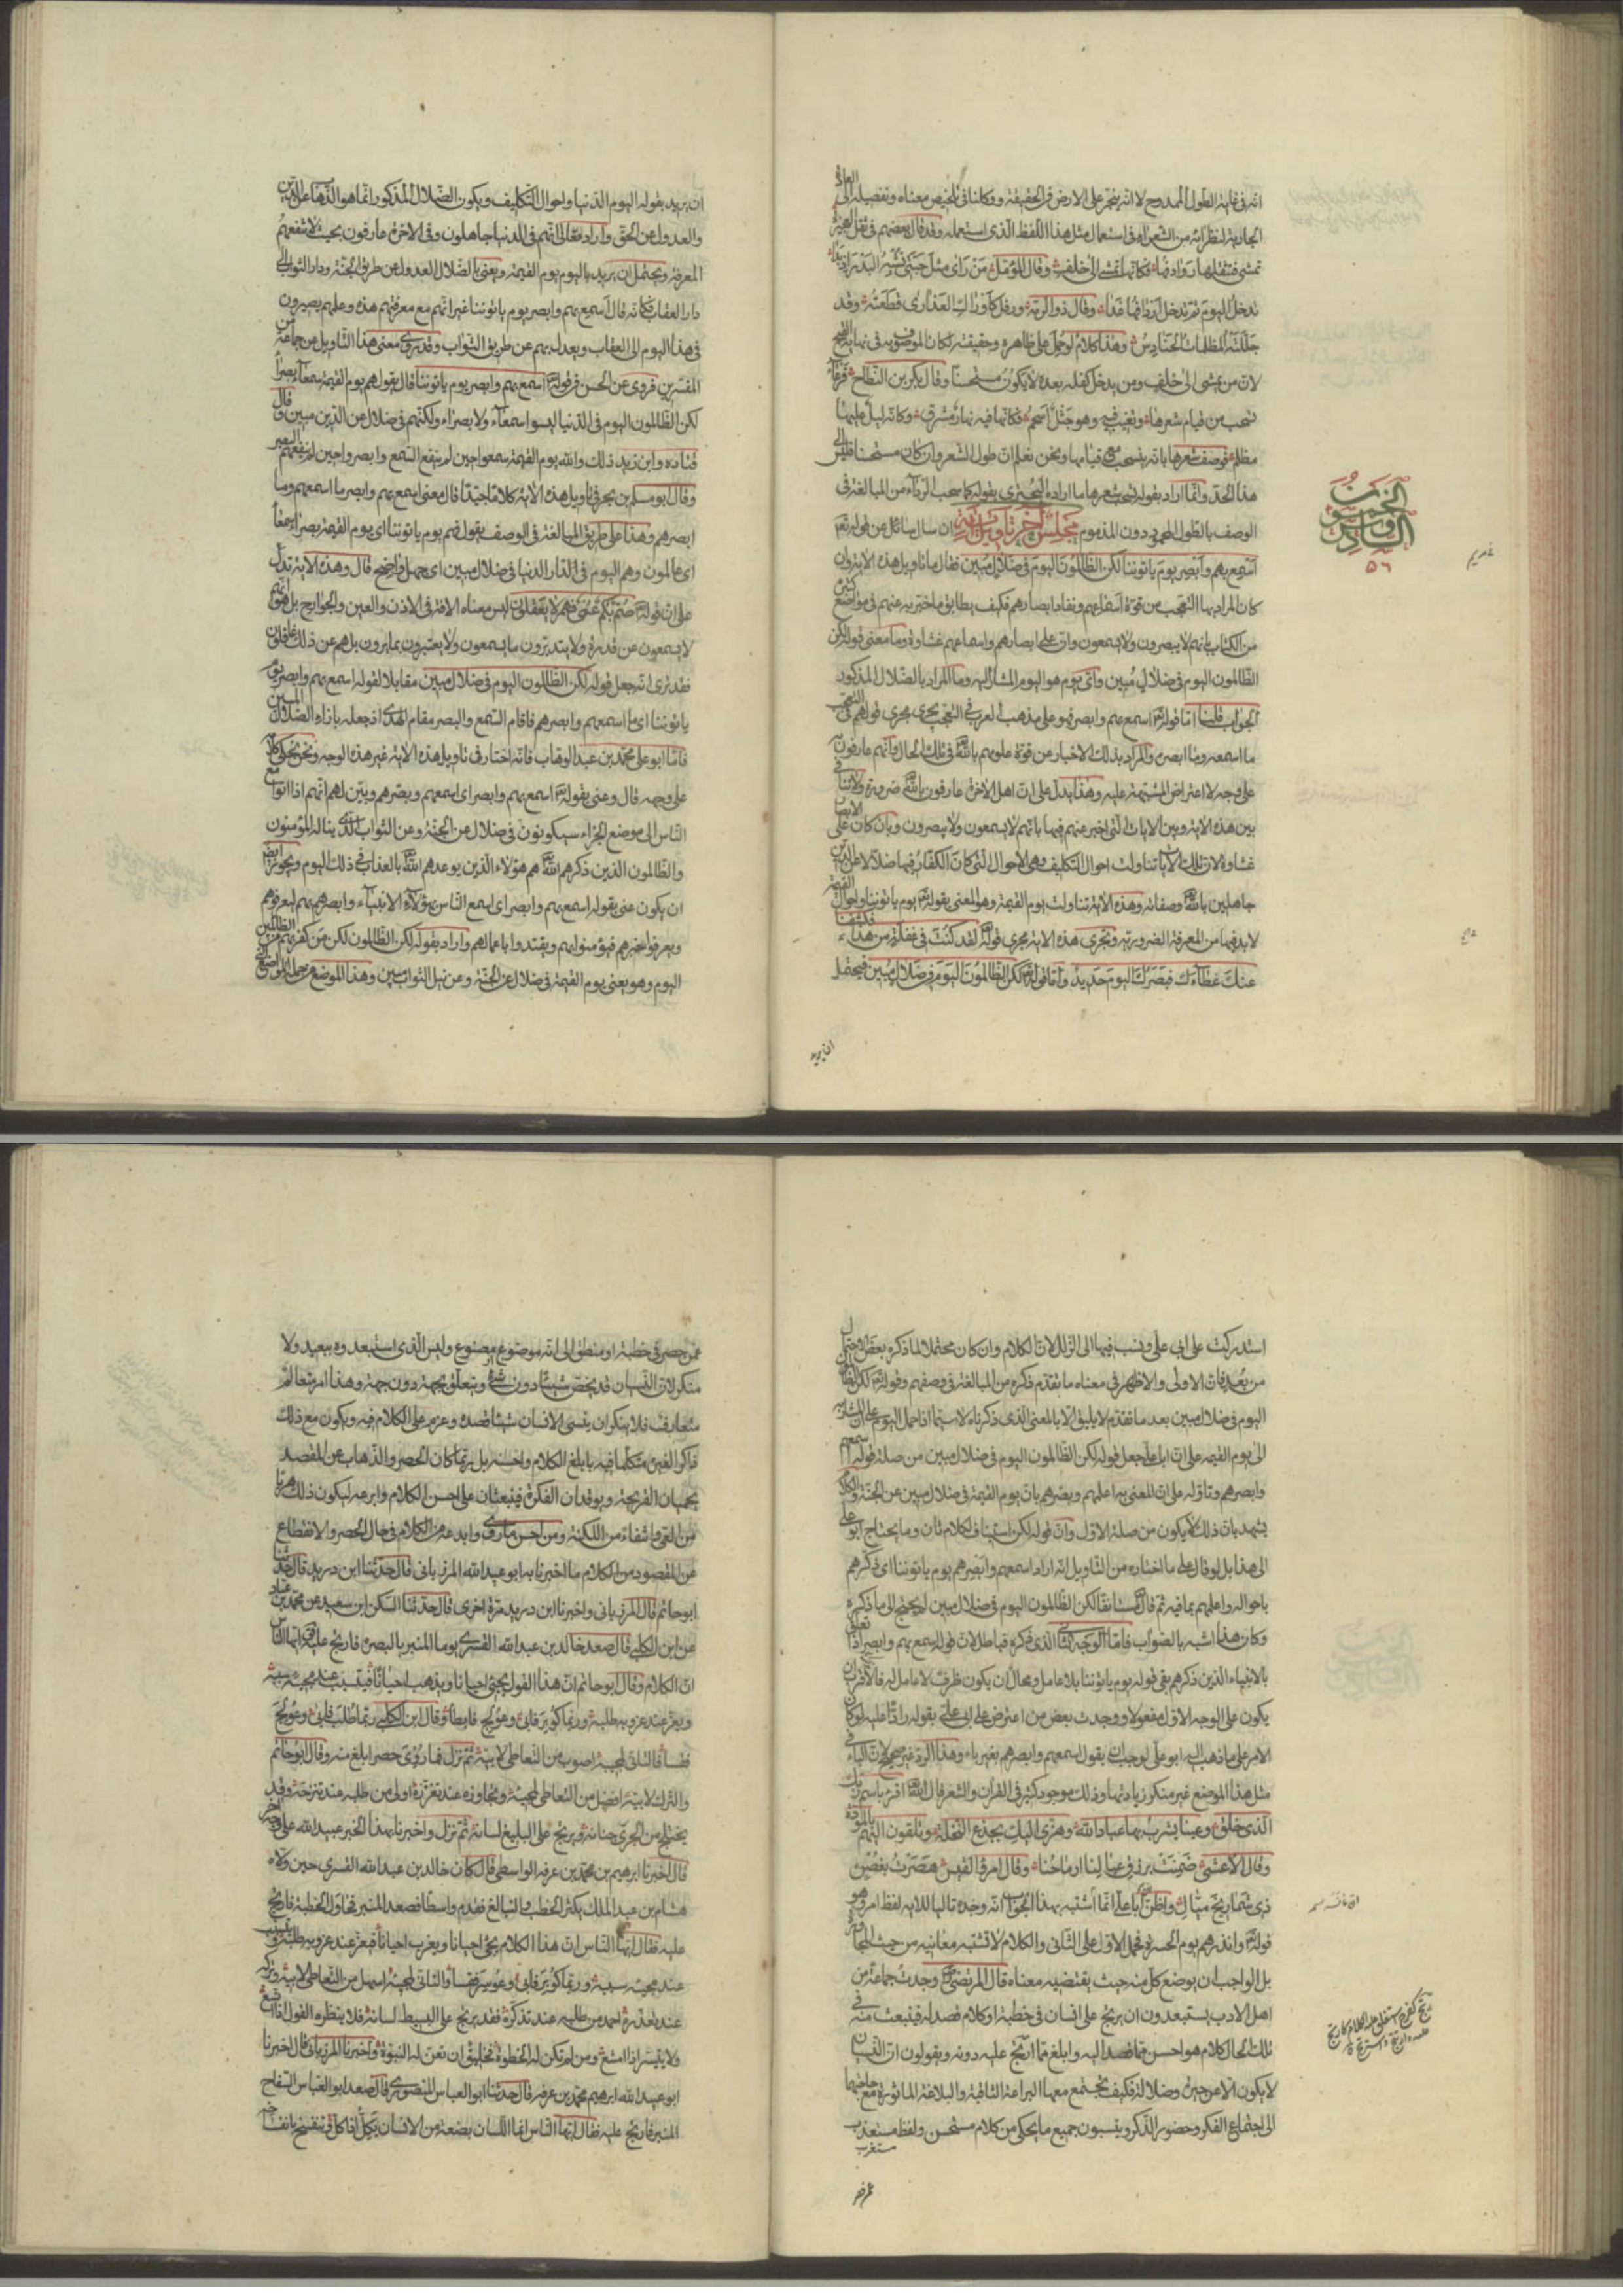 انه في غاية الطول الممدوح لا انه ينجر على الارض في الحقيقة ووكلنا في تلخيص معناه وتفصيله الى العادة
الجارية لنظرائه من الشعراء في استعمال مثل هذا اللفظ الذي استعمله وقد قال بعضهم في ثقل العجيزة
تمشي فتثقلها روادفها فكانها تمشي الى خلف وقال المؤمل من راى مثل حبتي تشبه البدر اذ بدا
تدخل اليوم ثم تدخل اردافها غدا وقال ذو الرمة ورمل كاوراك العذارى قطعته وقد
جللته المظلمات الحنادس وهذا كلام لو حمل على ظاهره وحقيقته لكان الموصوف به في نهاية القبح
لان من يمشي الى خلف ومن يدخل كفله بعده لا يكون مستحسنا وقال بكر بن النطاح فرعاء
تسحب من قيام شعرها وتغيب فيه وهو جثل اسحم فكانها فيه نهار مشرق وكانه ليل عليها
مظلم فوصف شعرها بانه ينسحب مع قيامها ونحن نعلم ان طول الشعر وان كان مستحسنا فليس الى
هذا الحد وانما اراد بقوله تسحب شعرها ما اراده البحتري بقوله كما سحب الرداء من المبالغة في
الوصف بالطول المحمود دون المذموم مجلس آخر تأويل آية ان سال سائل عن قوله تعالى
اسمع بهم وابصر يوم ياتوننا لكن الظالمون اليوم في ضلال مبين فقال ما تاويل هذه الاية وان
كان المراد بها التعجب من قوة اسماعهم ونفاد ابصارهم فكيف يطابق ما خبر به عنهم في مواضع كثيرة
من الكتاب بانهم لا يبصرون ولا يسمعون وان على ابصارهم واسماعهم غشاوة وما معنى قوله لكن
الظالمون اليوم في ضلال مبين واي يوم هو اليوم المشار اليه وما المراد بالضلال المذكور
الجواب قلنا اما قوله تعالى اسمع بهم وابصر فهو على مذهب العرب في التعجب يجري مجرى قولهم في التعجب
ما اسمعه وما ابصره والمراد بذلك الاخبار عن قوة علومهم بالله تعالى في تلك الحال وانهم عارفون به
على وجه لا اعتراض للشبهة عليه وهذا يدل على ان اهل الاخرة عارفون بالله تعالى ضرورة ولا تنافي
بين هذه الاية وبين الايات التي اخبر عنهم فيها بانهم لا يسمعون ولا يبصرون وبان كان على الابصار
غشاوة لان تلك الايات تناولت احوال التكليف وهي الاحوال التي كان الكفار فيها ضلالا عن الدين
جاهلين بالله تعالى وصفاته وهذه الاية تناولت يوم القيمة وهو المعنى بقوله تعالى يوم ياتوننا واحوال القيمة
لا بد فيها من المعرفة الضرورية وتجري هذه الاية مجرى قوله تعالى لقد كنت في غفلة من هذا فكشفنا
عنك غطاءك فبصرك اليوم حديد واما قوله تعالى لكن الظالمون اليوم في ضلال مبين فيحتمل
ان يريد
الخمسون
السادس و
٥٦
ان يريد بقوله اليوم الدنيا واحوال التكليف ويكون الضلال المذكور انما هو الذهاب عن الدين
والعدول عن الحق واراد تعالى انهم في الدنيا جاهلون وفي الاخرة عارفون بحيث لا تنفعهم
المعرفة ويحتمل ان يريد باليوم يوم القيمة ويعني بالضلال العدول عن طريق الجنة ودار الثواب الى
دار العقاب فكانه قال اسمع بهم وابصر يوم ياتوننا غير انهم مع معرفتهم هذه وعلمهم يصيرون
في هذا اليوم الى العقاب ويعدل بهم عن طريق الثواب وقد روي معنى هذا التاويل عن جماعة من
المفسرين فروي عن الحسن في قوله تعالى اسمع بهم وابصر يوم ياتوننا قال يقول هم يوم القيمة سمعاء بصراء
لكن الظالمون اليوم في الدنيا ليسوا سمعاء ولا بصراء ولكنهم في ضلال عن الدين مبين وقال
قتادة وابن زيد ذلك والله يوم القيمة سمعوا حين لم ينفع السمع وابصروا حين لم ينفعهم البصر
وقال ابو مسلم بن بحر في تاويل هذه الاية كلاما جيدا قال معنى اسمع بهم وابصر ما اسمعهم وما
ابصرهم وهذا على طريق المبالغة في الوصف يقول فهم يوم ياتوننا اي يوم القيمة بصراء سمعاء
اي عالمون وهم اليوم في الدار الدنيا في ضلال مبين اي جهل واضح قال وهذه الاية تدل
على ان قوله تعالى صم بكم عمي فهم لا يعقلون ليس معناه الافة في الاذن والعين والجوارح بل هو انهم
لا يسمعون عن قدرة ولا يتدبرون ما يسمعون ولا يعتبرون بما يرون بل هم عن ذلك غافلون
فقد نرى انه جعل قوله لكن الظالمون اليوم في ضلال مبين مقابلا لقوله اسمع بهم وابصر يوم
ياتوننا اي ما اسمعهم وابصرهم فاقام السمع والبصر مقام الهدى اذ جعله بازاء الضلال المبين
فاما ابو علي محمد بن عبد الوهاب فانه اختار في تاويل هذه الاية غير هذا الوجه ونحن نحكي كلامه
على وجهه قال وعنى بقوله تعالى اسمع بهم وابصر اي اسمعهم وبصرهم وبين لهم انهم اذا اتوا مع
الناس الى موضع الجزاء سيكونون في ضلال عن الجنة وعن الثواب الذي يناله المؤمنون
والظالمون الذين ذكرهم الله تعالى هم هؤلاء الذين يوعدهم الله تعالى بالعذاب في ذلك اليوم ويجوز ايضا
ان يكون عنى بقوله اسمع بهم وابصر اي اسمع الناس بهؤلاء الانبياء وابصرهم بهم ليعرفوهم
ويعرفوا خبرهم فيؤمنوا بهم ويقتدوا باعمالهم واراد بقوله لكن الظالمون لكن من كفر بهم من الظالمين
اليوم وهو يعني يوم القيمة في ضلال عن الجنة وعن نيل الثواب مبين وهذا الموضع من جملة المواضع التي
استدركت على ابي علي ونسب فيها الى الزلل لان الكلام وان كان محتملا لما ذكره بعض الاحتمال
من بعد فان الاولى والاظهر في معناه ما تقدم ذكره من المبالغة في وصفهم وقوله تعالى لكن الظالمون
اليوم في ضلال مبين بعد ما تقدم لا يليق الا بالمعنى الذي ذكرناه لا سيما اذا حمل اليوم على ان المشار به
الى يوم القيمة على ان ابا علي جعل قوله لكن الظالمون اليوم في ضلال مبين من صلة قوله اسمع بهم
وابصرهم وتاوله على ان المعنى به اعلمهم وبصرهم بان يوم القيمة في ضلال مبين عن الجنة والكلام
يشهد بان ذلك لا يكون من صلة الاول وان قوله لكن استيناف لكلام ثان وما يحتاج ابو علي
الى هذا بل لو قال على ما اختاره من التاويل انه اراد اسمعهم وابصرهم يوم ياتوننا اي ذكرهم
باحواله واعلمهم بما فيه ثم قال مستانفا لكن الظالمون اليوم في ضلال مبين لم يحتج الى ما ذكره
وكان هذا اشبه بالصواب فاما الوجه الثاني الذي ذكره فباطل لان قوله اسمع بهم وابصر اذا تعلق
بالانبياء الذين ذكرهم بقي قوله يوم ياتوننا بلا عامل ومحال ان يكون ظرف لا عامل له فالاقرب ان
يكون على الوجه الاول مفعولا ووجدت بعض من اعترض على ابي علي يقول رادا عليه لو كان
الامر على ما ذهب اليه ابو علي لوجب ان يقول اسمعهم وابصرهم بغير باء وهذا الرد غير صحيح لان الباء في
مثل هذا الموضع غير منكر زيادتها وذلك موجود كثير في القران والشعر قال الله تعالى اقرا باسم ربك
الذي خلق وعينا يشرب بها عباد الله وهزي اليك بجذع النخلة وتلقون اليهم بالمودة
وقال الاعشى ضمنت برزق عيالنا ارماحنا وقال امرؤ القيس هصرت بغصن
ذي شماريخ ميال واظن ابا علي انما اشتبه بهذا الجواب انه وجده تاليا للاية لفظ امر وهو
قوله تعالى وانذرهم يوم الحسرة فحمل الاول على الثاني والكلام لا تشتبه معانيه من حيث المجاورة
بل الواجب ان يوضع كل منه حيث يقتضيه معناه قال المرتضى وجدت جماعة من
اهل الادب يستبعدون ان يرتج على انسان في خطبة او كلام قصد له فينبعث منه في
تلك الحال كلام هو احسن مما قصد اليه وابلغ مما ارتج عليه دونه ويقولون ان النسيان
لا يكون الا عن حيرة وضلالة فكيف تجتمع معهما البراعة الثاقبة والبلاغة الماثورة مع حاجتهما
الى اجتماع الفكر وحضور الذكر وينسبون جميع ما يحكى من كلام مستحسن ولفظ مستعذب
مستغرب
عمن حصر
عمن حصر في خطبة او منطق الى انه موضوع مصنوع وليس الذي استبعدوه ببعيد ولا
منكر لان النسيان قد يخص شيئا دون شيء ويتعلق بجهة دون جهة وهذا امر متعالم
متعارف فلا ينكر ان ينسى الانسان شيئا قصده وعزم على الكلام فيه ويكون مع ذلك
ذاكرا لغيره متكلما فيه بابلغ الكلام واحسنه بل ربما كان الحصر والذهاب عن المقصد
يحميان القريحة ويوقدان الفكرة فيبعثان على احسن الكلام وابرعه ليكون ذلك هربا
من العي وانتفاء من اللكنة ومن احسن ما روي وابدعه من الكلام في حال الحصر والانقطاع
عن المقصود من الكلام ما اخبرنا به ابو عبيد الله المرزباني قال حدثنا ابن دريد قال حدثنا
ابو حاتم قال المرزباني واخبرنا ابن دريد مرة اخرى قال حدثنا السكن ابن سعيد عن محمد بن عباد
عن ابن الكلبي قال صعد خالد بن عبد الله القسري يوما المنبر بالبصرة فارتج عليه فقال ايها الناس
ان الكلام وقال ابو حاتم ان هذا القول يجيء احيانا ويذهب احيانا فيتسبب عند مجيئه سببه
ويعز عند عزوبه طلبه وربما كوبر فابى وعولج فابطا وقال ابن الكلبي ربما طلب فابى وعولج
فقسا فالتاني لمجيه اصوب من التعاطي لابيه ثم نزل فما رؤي حصر ابلغ منه وقال ابو حاتم
والترك لابيه افضل من التعاطي لمجيه وتجاوزه عند تعززه اولى من طلبه عند تنزحه وقد
يختلج من الجريء جنانه ويرتج على البليغ لسانه ثم نزل واخبرنا بهذا الخبر عبيد الله على وجه اخر
قال اخبرنا ابرهيم بن محمد بن عرفة الواسطي قال كان خالد بن عبد الله القسري حين ولاه
هشام بن عبد الملك يكثر الخطب والتبالغ فقدم واسطا فصعد المنبر فحاول الخطبة فارتج
عليه فقال ايها الناس ان هذا الكلام يجيء احيانا ويعزب احيانا فيعز عند عزوبه طلبه ويتسبب
عند مجيئه سببه وربما كوبر فابى وعوسر فقسا والتاني لمجيه اسهل من التعاطي لابيه وتركه
عند تعذره احمد من طلبه عند تنكره فقد يرتج على البسيط لسانه فلا ينظره القول اذا اتسع
ولا يتيسر اذا امتنع ومن لم تكن له الخطوة فخليق ان تعن له النبوة واخبرنا المرزباني قال اخبرنا
ابو عبد الله ابرهيم محمد بن عرفة قال حدثنا ابو العباس المنصوري قال صعد ابو العباس السفاح
المنبر فارتج عليه فقال ايها الناس انما اللسان بضعة من الانسان يكل اذا كل